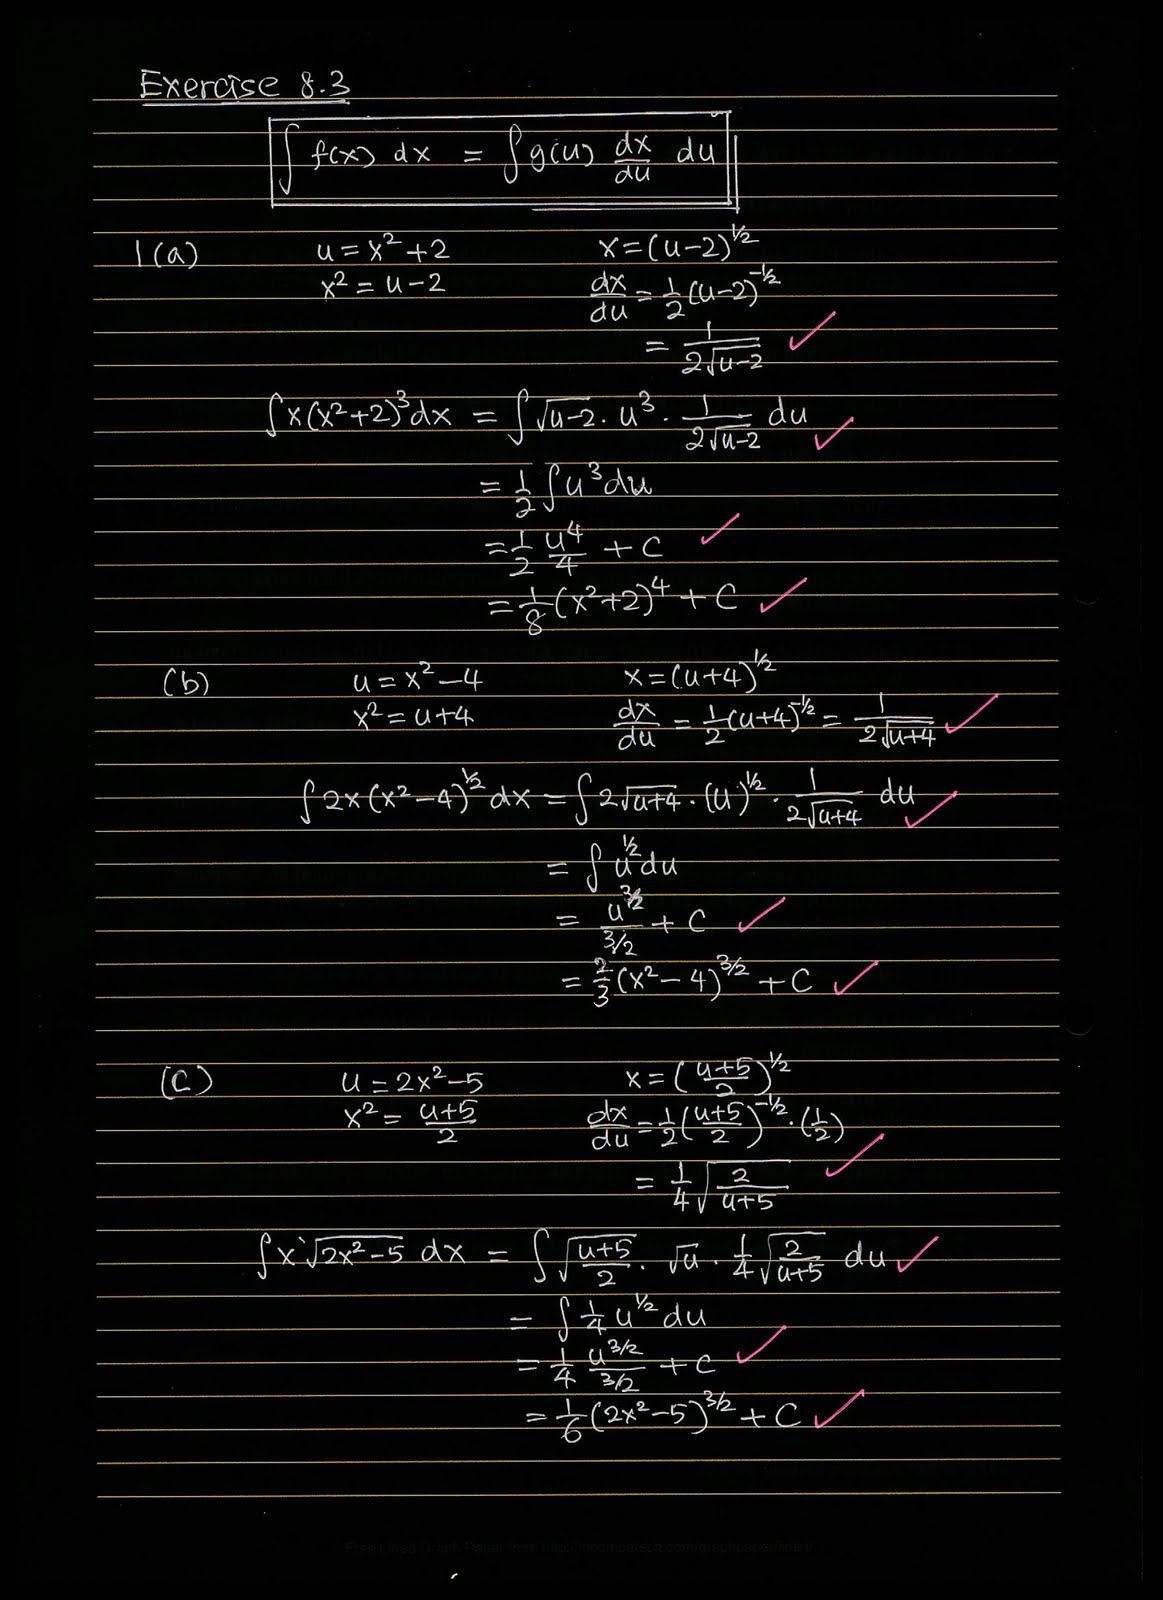 Exercise 8.3
∫ f(x) dx = ∫ g(u) dx/du du
1(a) u = x² + 2 x = (u-2)^1/2
x² = u-2 dx/du = 1/2 (u-2)^-1/2
= 1/(2√(u-2))
∫ x(x²+2)³ dx = ∫ √(u-2) · u³ · 1/(2√(u-2)) du
= 1/2 ∫ u³ du
= 1/2 u⁴/4 + C
= 1/8 (x²+2)⁴ + C
(b) u = x² - 4 x = (u+4)^1/2
x² = u+4 dx/du = 1/2 (u+4)^-1/2 = 1/(2√(u+4))
∫ 2x (x² - 4)^1/2 dx = ∫ 2√(u+4) · (u)^1/2 · 1/(2√(u+4)) du
= ∫ u^1/2 du
= u^3/2 / 3/2 + C
= 2/3 (x² - 4)^3/2 + C
(c) u = 2x² - 5 x = ((u+5)/2)^1/2
x² = (u+5)/2 dx/du = 1/2 ((u+5)/2)^-1/2 · (1/2)
= 1/4 √(2/(u+5))
∫ x √(2x² - 5) dx = ∫ √((u+5)/2) · √u · 1/4 √(2/(u+5)) du
= ∫ 1/4 u^1/2 du
= 1/4 u^3/2 / 3/2 + C
= 1/6 (2x² - 5)^3/2 + C